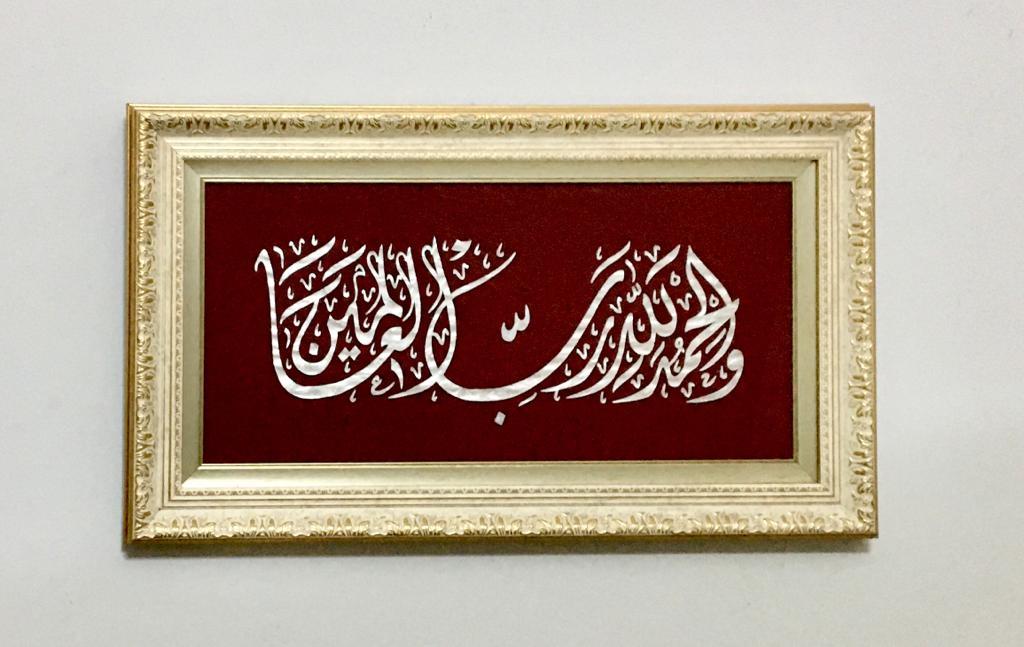 والحمد لله رب العالمين